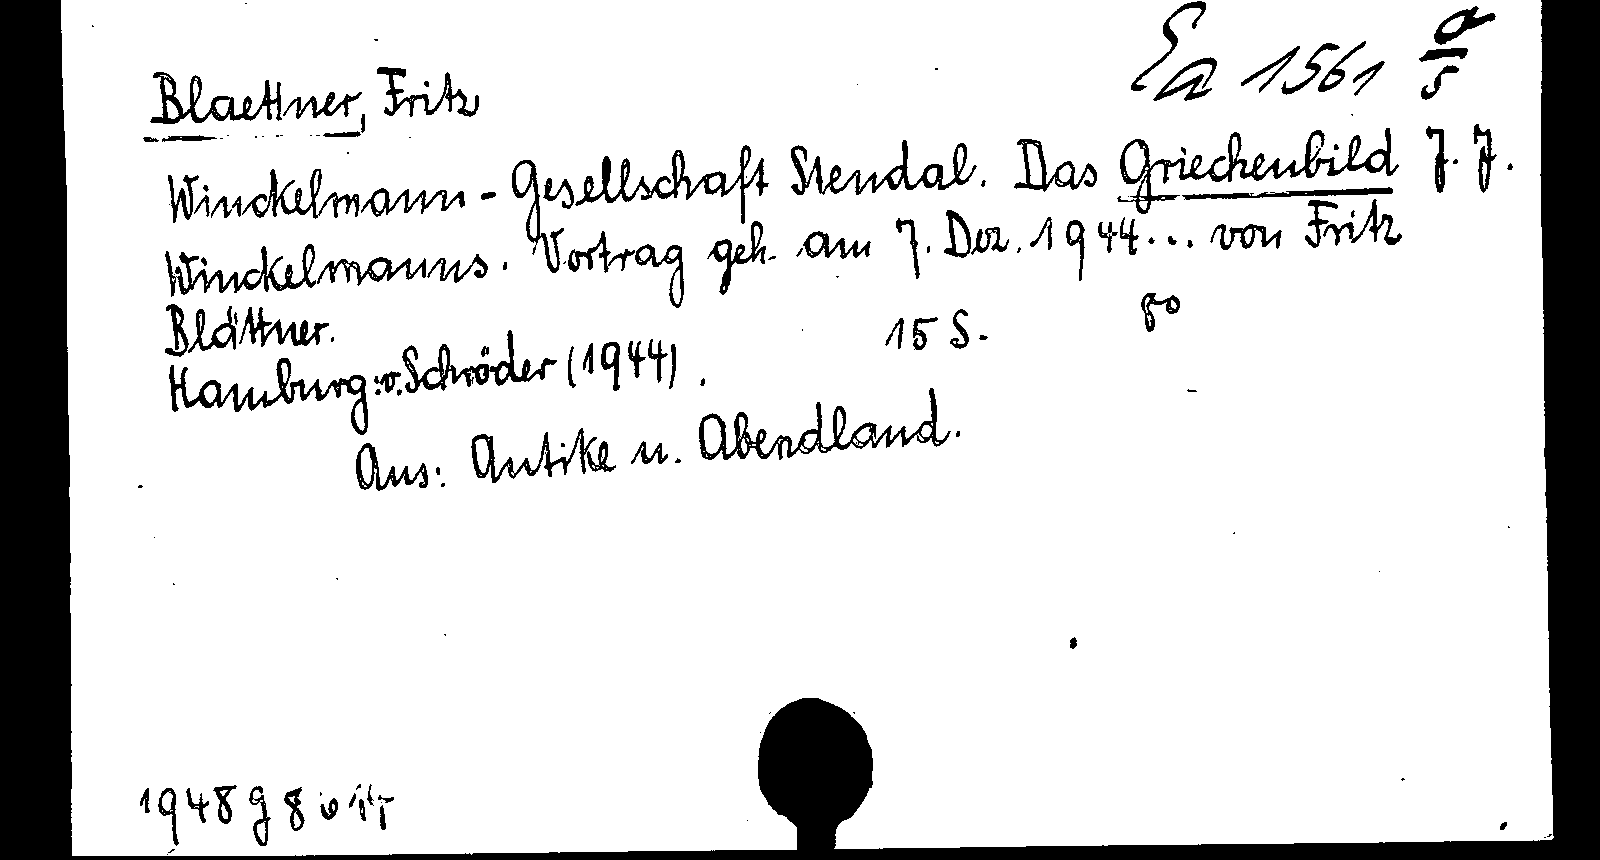 Ea 1561 a/5
Blaettner, Fritz
Winckelmann-Gesellschaft Stendal. Das Griechenbild J. J.
Winckelmanns. Vortrag geh. am 7. Dez. 1944... von Fritz
Blättner.
15 S. 8°
Hamburg: v. Schröder (1944).
Aus: Antike u. Abendland.
1948 g 8